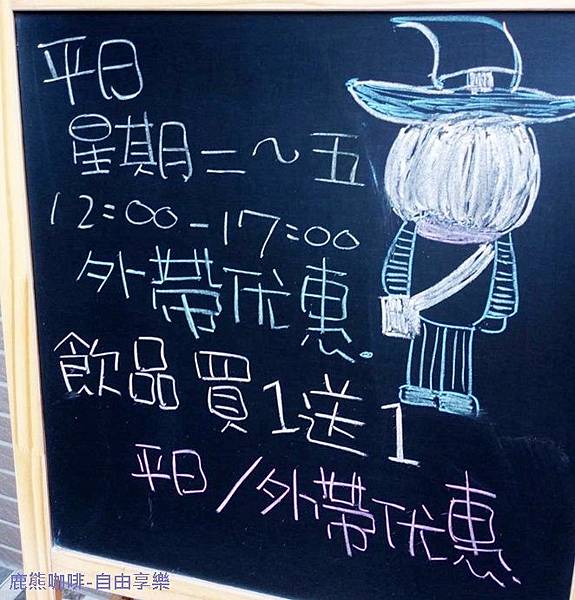 平日
星期二~五
12:00-17:00
外帶优惠.
飲品買1送1
平日/外帶优惠.
鹿熊咖啡-自由享樂